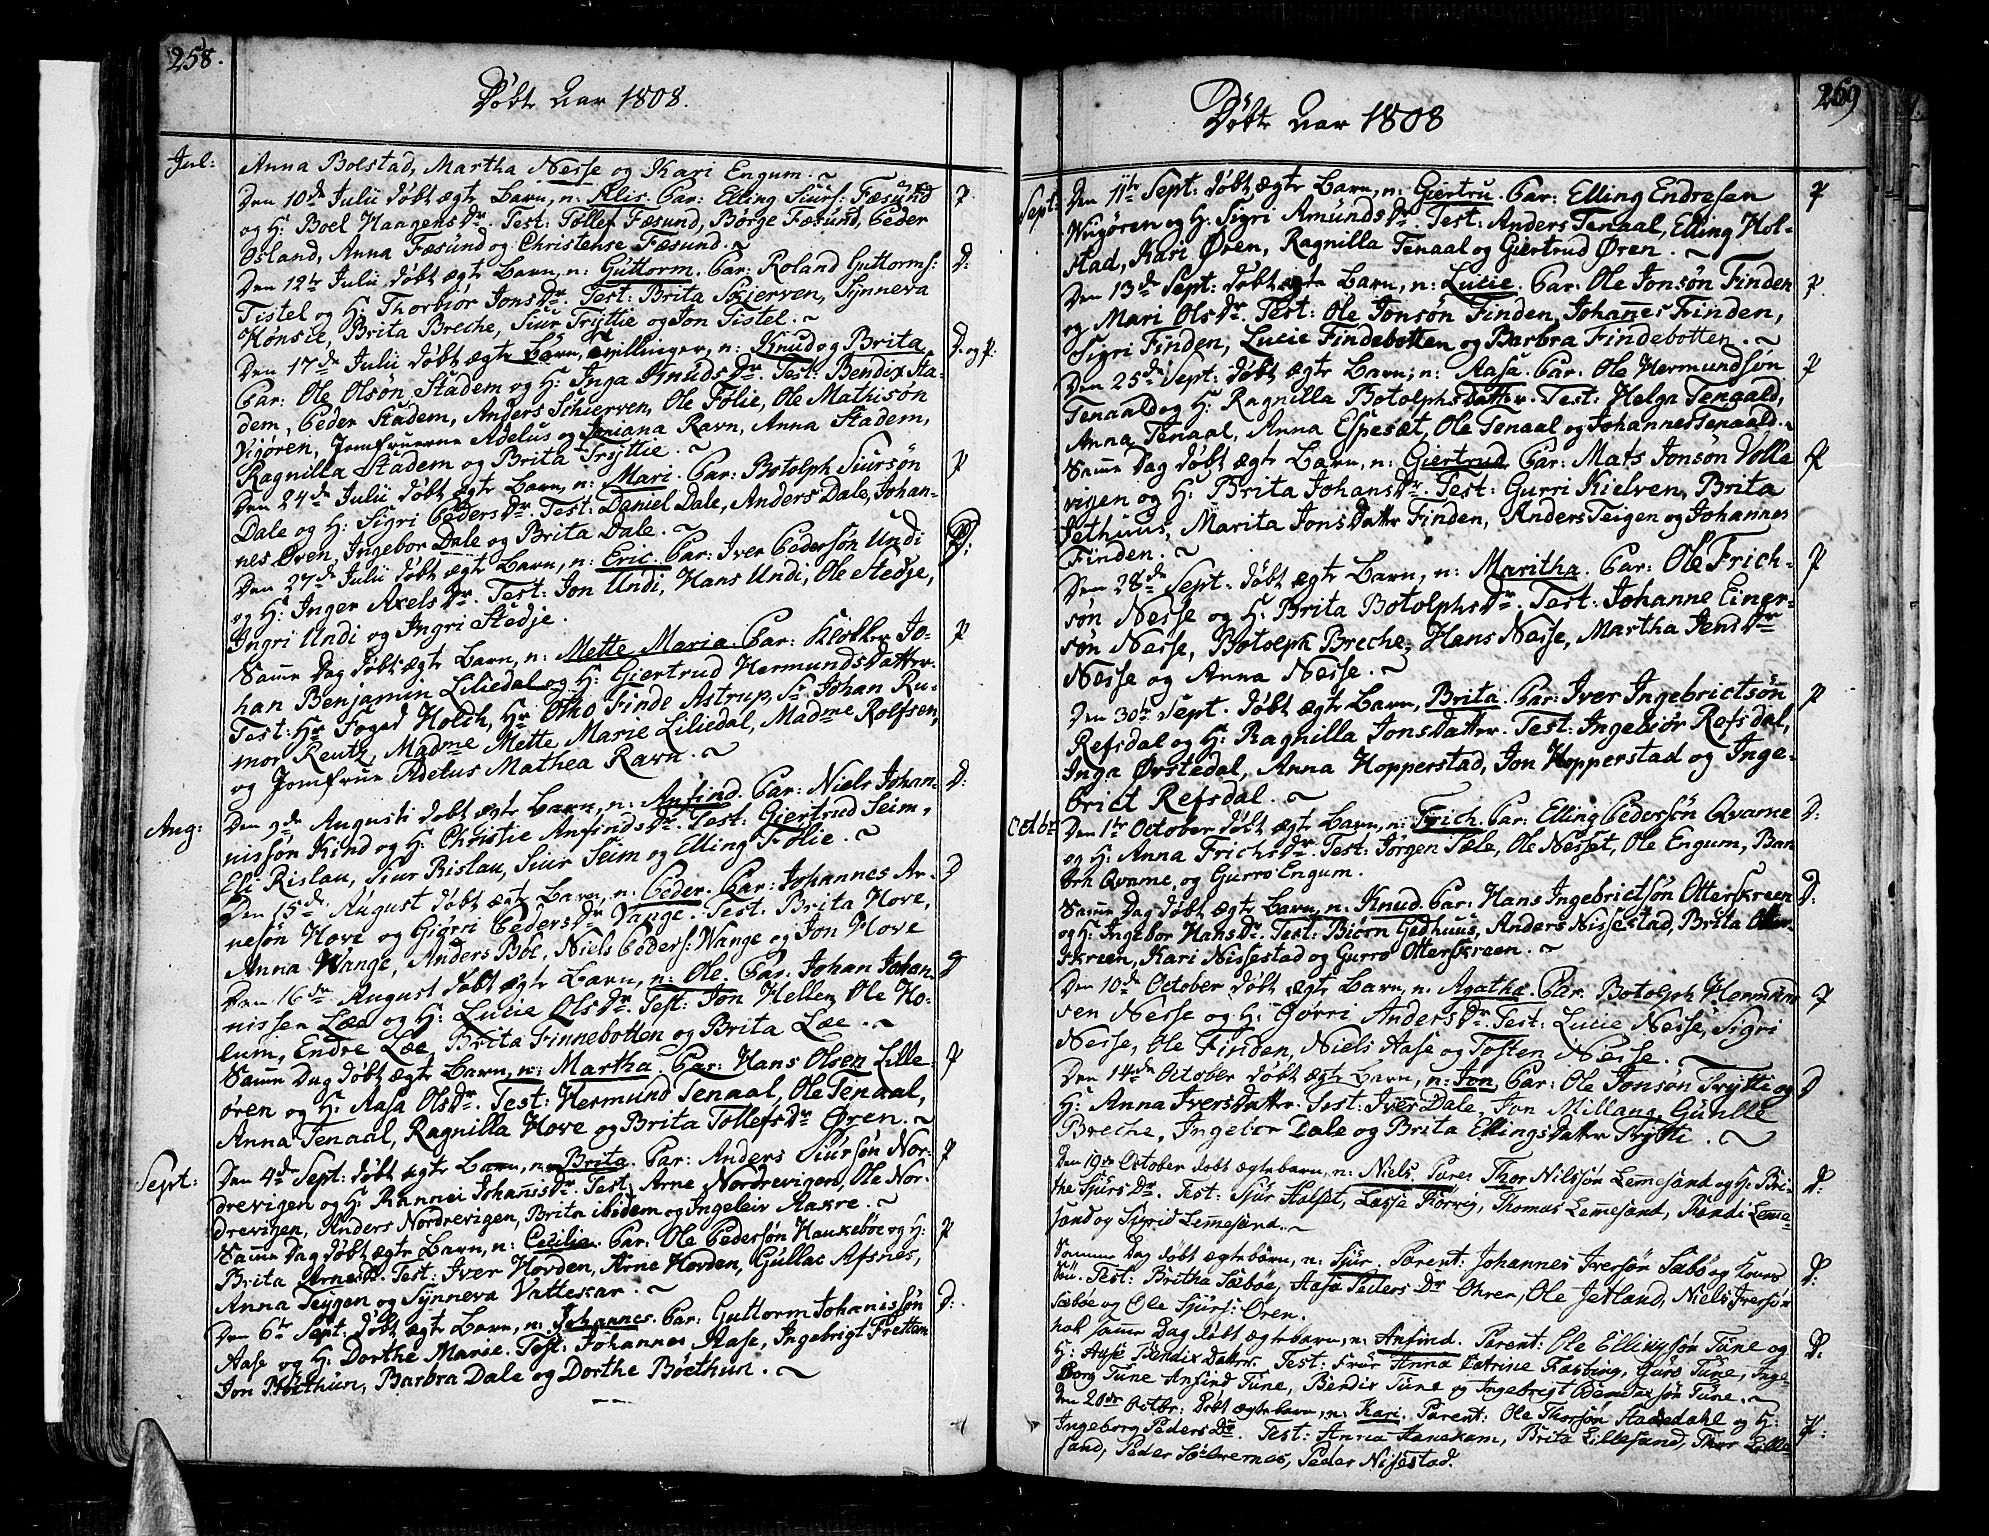 258.
Døbte Aar 1808.
Jul: Anna Bolstad, Martha Nesse og Kari Engum.
Den 10de Julii døbt ægte Barn, n: Alis. Par: Elling Siurs: Fæsund P.
og H: Boel HaagensDr. Test: Tollef Fæsund, Børge Fæsund, Peder
Osland, Anna Fæsund og Christense Fæsund.
Den 12te Julii døbt ægte Barn, n: Guttorm. Par: Roland Guttorms: D:
Tistel og H: Thorbiør JonsDr. Test: Brita Skierven, Synneva
Hønsie, Brita Breche, Siur Tryttie og Jon Tistel.
Den 17de Julii døbt ægte Børn, Tvillinger, n: Knud og Brita D. og P:
Par: Ole Olsøn Stadem og H: Inga KnudsDr. Test: Bendix Sta-
dem, Peder Stadem, Anders Schierven, Ole Folie, Ole Mathisøn
Vigøren, Jomfruerne Adelus og Janiana Ravn, Anna Stadem,
Ragnilla Stadem og Brita Tryttie.
Den 24de Julii døbt ægte Barn, n: Mari. Par: Botolph Siursøn P
Dale og H: Sigri PedersDr. Test: Daniel Dale, Anders Dale, Johan-
nes Øren, Ingebor Dale og Brita Dale.
Den 27de Julii døbt ægte Barn, n: Eric. Par: Iver Pedersøn Undi D:
og H: Inger AxelsDr. Test: Jon Undi, Hans Undi, Ole Stedje,
Ingri Undi og Ingri Stedje.
Samme Dag døbt ægte Barn, n: Mette Maria. Par: Klokker Jo- P
han Benjamin Liliedal og H: Giertrud HermundsDatter.
Test: Hr Foged Holch, Hr Otho Finde Astrup, Sr Johan Ru-
mor Reutz, Madme Mette Marie Liliedal, Madme Rolfsen,
og Jomfrue Adelus Mathea Ravn.
Aug: Den 9de Augusti døbt ægte Barn, n: Anfind. Par: Niels Johan- D:
nissøn Kind og H: Christie AnfindsDr. Test: Giertrud Seim,
Eli Rislau, Siur Rislau, Siur Seim og Elling Folie.
Den 15de August døbt ægte Barn, n: Peder. Par: Johannes Ar- D
nesøn Hove og Giøri PedersDr Vange. Test: Brita Hove,
Anna Wange, Anders Bøe, Niels Peders: Wange og Jon Hove
Den 16de August døbt ægte Barn, n: Ole. Par: Johan Johan- D
nissen Læe og H: Lucie OlsDr. Test: Jon Hellen, Ole Ho-
lum, Endre Læe, Brita Finnebotten og Brita Læe.
Samme Dag døbt ægte Barn, n: Martha. Par: Hans Olsen Lille- P
øren og H: Aasa OlsDr. Test: Hermund Tenaal, Ole Tenaal,
Anna Tenaal, Ragnilla Hove og Brita TollefsDr Øren.
Sept: Den 4de Sept: døbt ægte Barn, n: Brita. Par: Anders Siursøn Nor- P
drevigen og H: Rannei JohannisDr. Test: Arne Nordrevigen, Ole Nor-
drevigen, Anders Nordrevigen, Brita ibidem og Ingeleiv Aakre.
Samme Dag døbt ægte Barn, n: Cecilia. Par. Ole Pedersøn Haukebøe og H: P
Brita ArnesDr. Test: Iver Hovden, Arne Hovden, Gullac Afsnes,
Anna Teygen og Synneva Vattekar.
Den 6te Sept: døbt ægte Barn, n: Johannes. Par: Guttorm Johanissøn D:
Aase og H: Dorthe Marie. Test: Johannes Aase, Ingebrigt Fretten
Jon Bøethun, Barbra Dale og Dorthe Bøethun.
269
Døbte Aar 1808
Sept: Den 11te Sept: døbt ægte Barn, n: Giertru. Par: Elling Endresen P
Wigøren og H: Sigri AmundsDr. Test: Anders Tenaal, Elling Hol-
stad, Kari Øren, Ragnilla Tenaal og Giertrud Øren.
Den 13de Sept: døbt ægte Barn, n: Lucie. Par: Ole Jonsøn Finden P.
og Mari OlsDr. Test: Ole Jonsøn Finden, Johannes Finden,
Sigri Finden, Lucie Findebotten og Barbra Findebotten.
Den 25de Sept: døbt ægte Barn, n: Aasa. Par: Ole Hermundsøn P
Tenaald og H: Ragnilla Botolphsdatter. Test: Helga Tenaald,
Anna Tenaal, Anna Espesæt, Ole Tenaal og Johannes Tenaald.
Samme Dag døbt ægte Barn, n: Giertrud Par: Mats Jonsøn Volle P
vigen og H: Brita JohansDr. Test: Gurri Kielven, Brita
Jethuus, Marita JonsDatter Finden, Anders Teigen og Johannes
Finden.
Den 28de Sept. døbt ægte Barn, n: Maritha. Par: Ole Frich- P
søn Nesse og H: Brita BotolphsDr. Test: Johanne Einer-
søn Nesse, Botolph Breche, Hans Nesse, Martha JensDr
Nesse og Anna Nesse.
Den 30te Sept. døbt ægte Barn, Brita. Par: Iver Ingebrictsøn P
Refsdal og H: Ragnilla JonsDatter. Test: Ingebiør Refsdal,
Inga Ørstedal, Anna Hopperstad, Jon Hopperstad og Inge-
brict Refsdal.
Octbr Den 1te October døbt ægte Barn, n: Frich. Par: Elling Pedersøn Qvamme D:
og H: Anna FrichsDr. Test: Jørgen Sæle, Ole Nesset, Ole Engum,
Qvame, og Gurro Engum.
Samme Dag døbt ægte Barn, n: Knud. Par: Hans Ingebrictsøn Otterskreen D:
og H: Ingebor HansDr. Test: Biørn Gidhuus, Anders Nissestad, Brita Otter-
skreen, Kari Nissestad og Gurro Otterskreen.
Den 10de October døbt ægte Barn, n: Agatha. Par: Botolph Hermund P
sen Nesse og H: Giørri AndersDr. Test: Lucie Nesse, Sigri
Nesse, Ole Finden, Niels Aase og Tosten Nesse.
Den 14de October døbt ægte Barn, n: Jon. Par: Ole Jonsøn Trytti og D
H: Anna IversDatter. Test: Iver Dale, Jon Millang, Gunlle
Breche, Ingebor Dale og Brita EllingsDatter Trytti.
Den 19de October døbt ægtebarn, n: Niels. Pare: Thor Nilssøn Lemmesand og H: Bri- D:
the SjursDr. Test: Sjur Halset, Lasse Forvig, Thomas Lemmesand, Randi Lemme-
sand og Sigrid Lemmesand.
Samme Dag døbt ægtebarn, n: Sjur. Parent: Johannes Iversøn Sæbø og Kone D:
Test: Britha Sæbøe, Aasa PedersDr Ohren, Ole Jetland, Niels Iversøn
Sæbøe og Ole Sjurs: Øren.
nok samme Dag døbt ægtebarn, n: Anfind. Parent: Ole Ellingsøn Tune og D:
H: Aase BendixDatter. Test: Frue Anna Catrine Fasting, Guro Tune, Inge-
borg Tune Anfind Tune, Bendix Tune og Ingebrigt Bendixsøn Tune.
Den 20de Octbr: døbt ægtebarn, n: Kari. Parent: Ole Thorsøn Staaedahl og H: P:
Ingeborg PedersDr. Test: Anna Hanekam, Brita Lillesand, Thor Lille-
sand, Peder Sølvernes, Peder Nissestad.